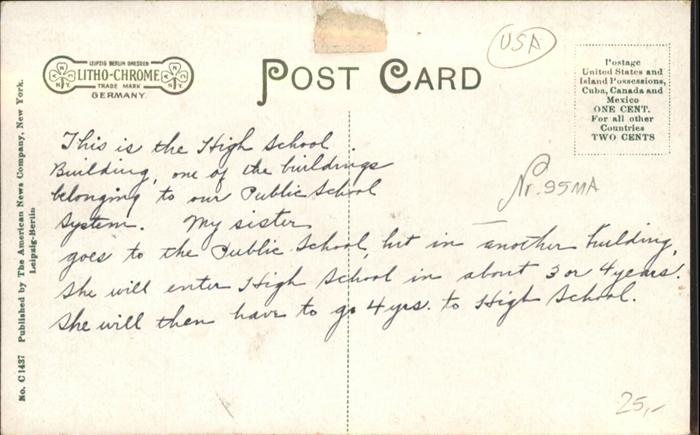 USA
LEIPZIG BERLIN DRESDEN
LITHO-CHROME
TRADE MARK
GERMANY.
POST CARD
Postage
United States and
Island Possessions,
Cuba, Canada and
Mexico
ONE CENT.
For all other
Countries
TWO CENTS
No. C1437 Published by The American News Company, New York.
Leipzig-Berlin
This is the High School
Building, one of the buildings
belonging to our Public School
System. My sister
goes to the Public School, but in another building,
She will enter High School in about 3 or 4 years.
She will then have to go 4 yrs. to High School.
Nr. 95MA
25,-